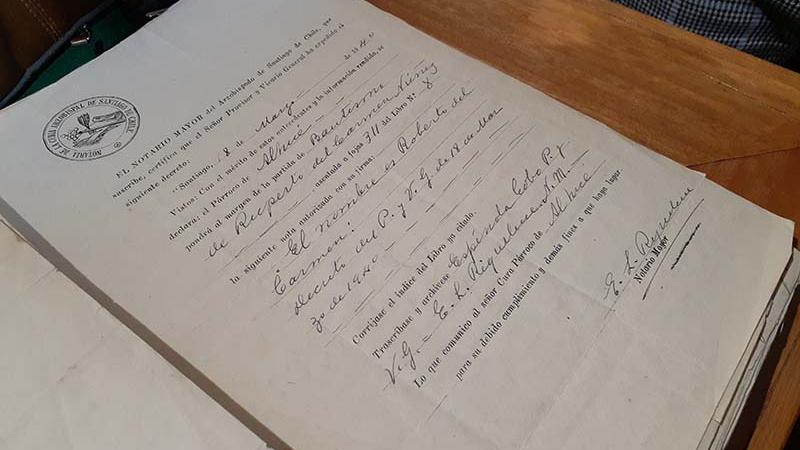 NOTARIA DE LA CURIA ARZOBISPAL DE SANTIAGO DE CHILE
EL NOTARIO MAYOR del Arzobispado de Santiago de Chile, que
suscribe, certifica que el Señor Provisor y Vicario General ha expedido el
siguiente decreto:
"Santiago, 18 de Marzo de 194
Vistos: Con el mérito de estos antecedentes y la información rendida, se
declara: el Párroco de Alhué
pondrá al margen de la partida de Bautismo
de Ruperto del Carmen Núñez
anotada a fojas 311 del Libro N.º 8
la siguiente nota autorizada con su firma:
"El nombre es Roberto del
Carmen".
Decreto del P. y V. G. de 18 de Mar
zo de 1940
Corríjase el índice del Libro ya citado.
Trascríbase y archívese Espínola Cobo P. y
V. G. — E. L. Riquelme N. M.
Lo que comunico al señor Cura Párroco de Alhué
para su debido cumplimiento y demás fines a que haya lugar
E. L. Riquelme
Notario Mayor